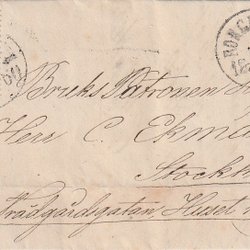 BORG
Bruks Patronen
Herr C. Ekm
Stockh
Trädgårdsgatan Huset